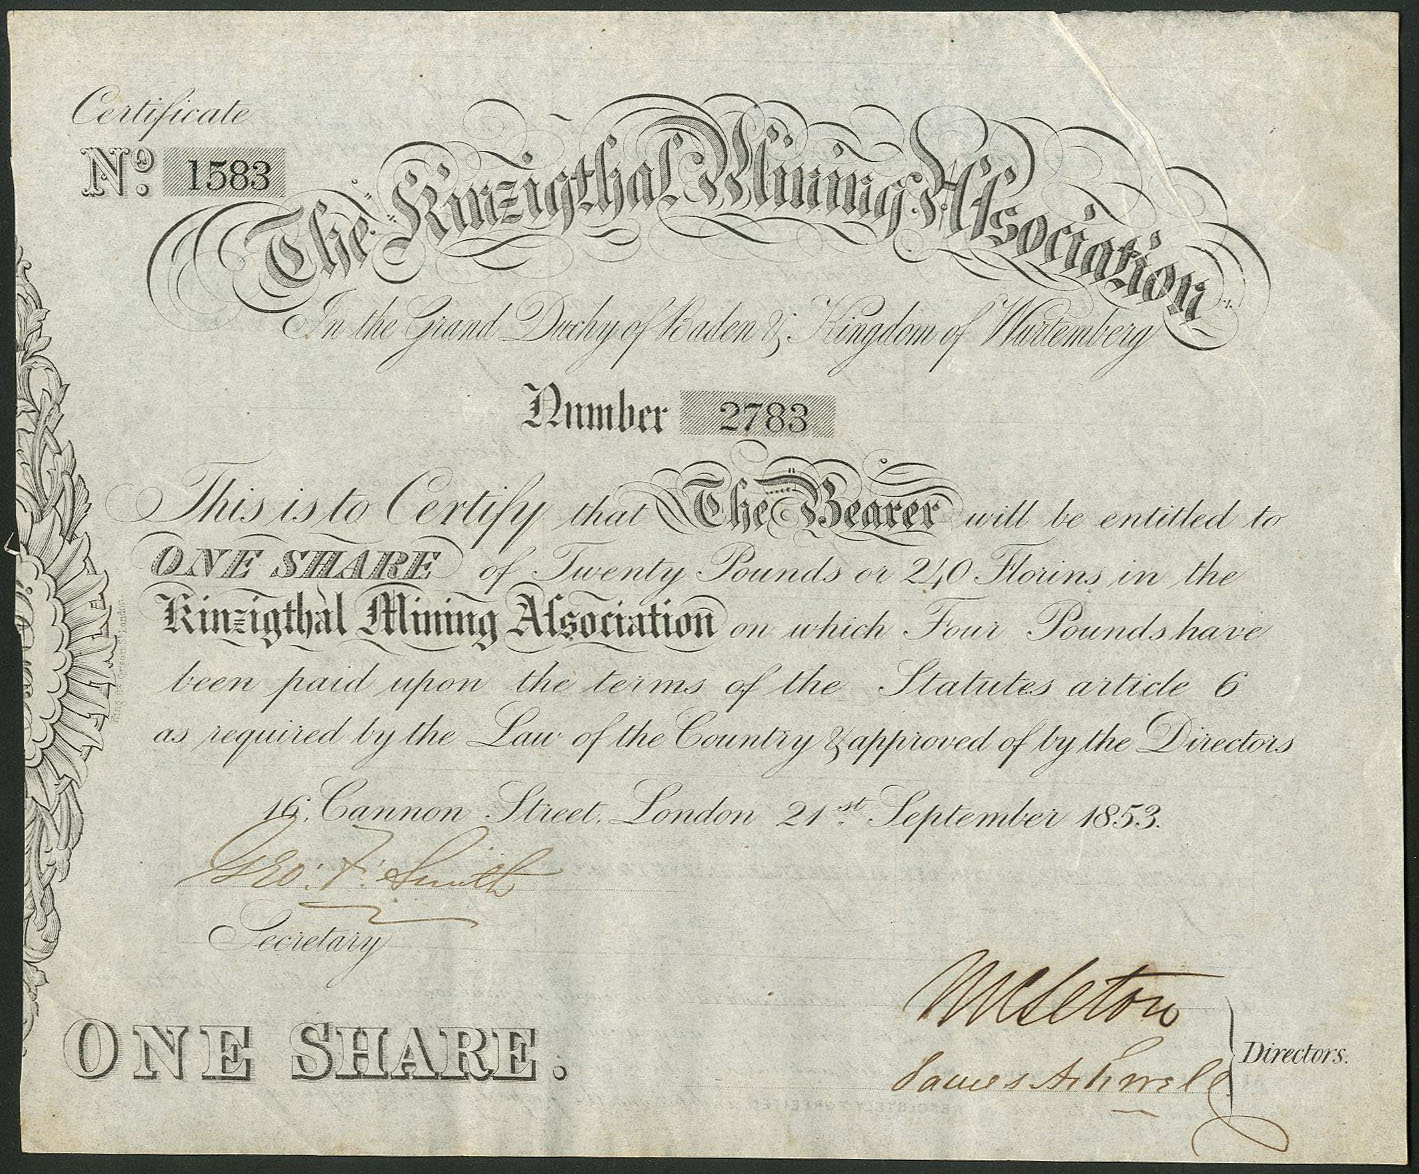 Certificate
No. 1583
The Kinzigthal Mining Association
In the Grand Duchy of Baden & Kingdom of Wurtemberg
Number 2783
This is to Certify that The Bearer will be entitled to
ONE SHARE of Twenty Pounds or 240 Florins in the
Kinzigthal Mining Association on which Four Pounds have
been paid upon the terms of the Statutes article 6
as required by the Law of the Country & approved of by the Directors
16, Cannon Street, London 21st September 1853.
Geo. F. Smith
Secretary
M C Seton
James Ashwell
Directors.
ONE SHARE.